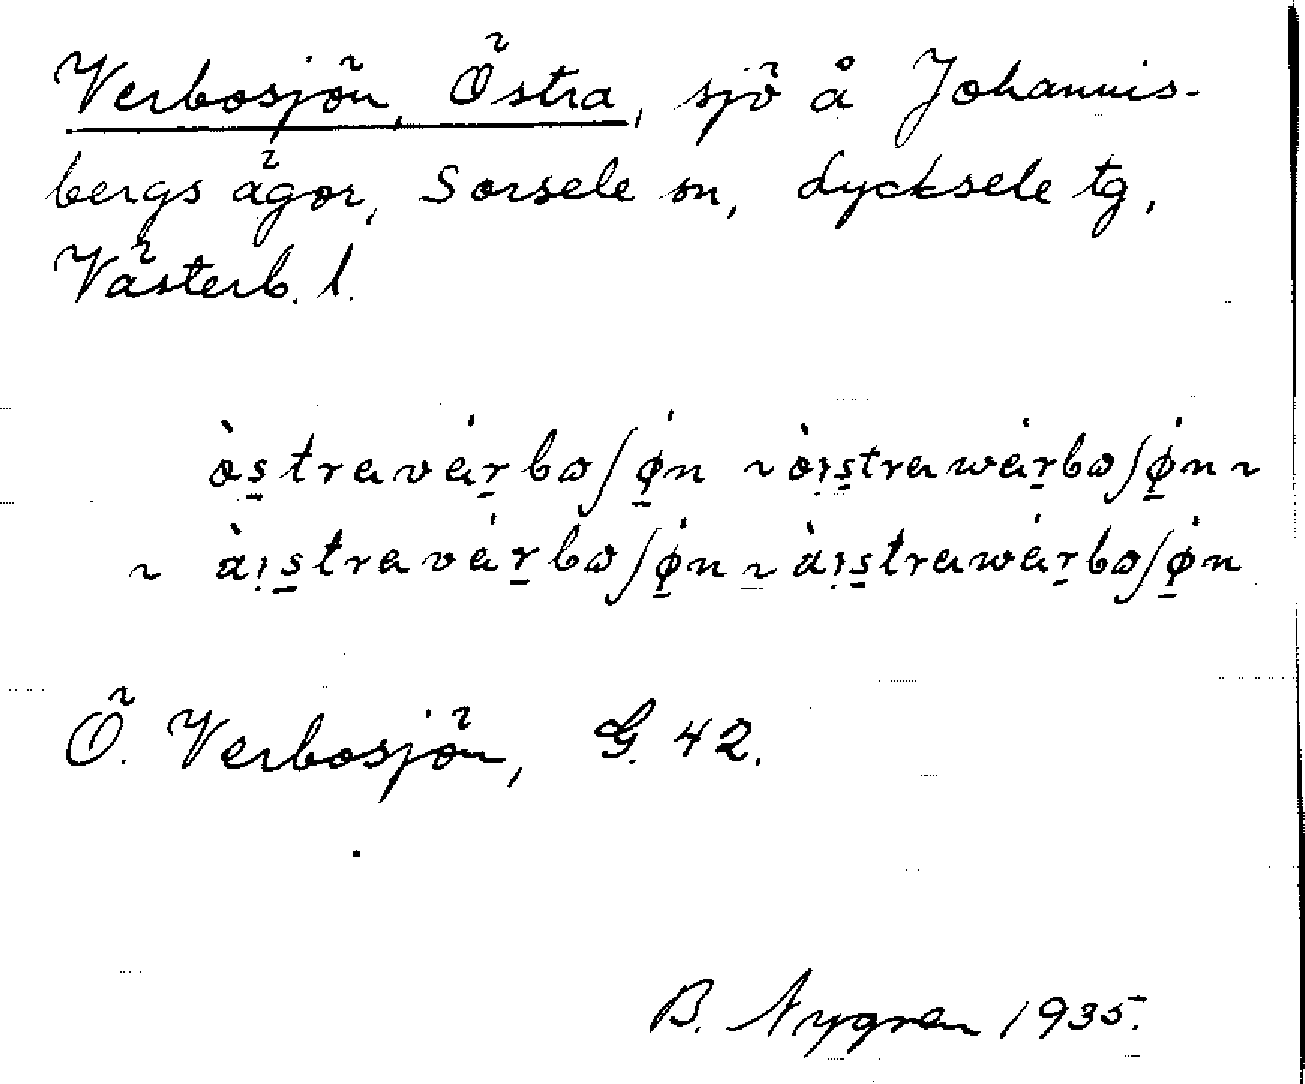 Verbosjön, Östra, sjö å Johannis-
bergs ägor, Sorsele sn, Lycksele tg,
Västerb. l.
ò̤s̲travár̲boʃǿ̲n ~ òı̣s̲trawár̲boʃǿ̲n ~
~ àı̣s̲travár̲boʃǿ̲n ~ àı̣s̲trawár̲boʃǿ̲n
Ö. Verbosjön, G. 42.
B. Nygren 1935.